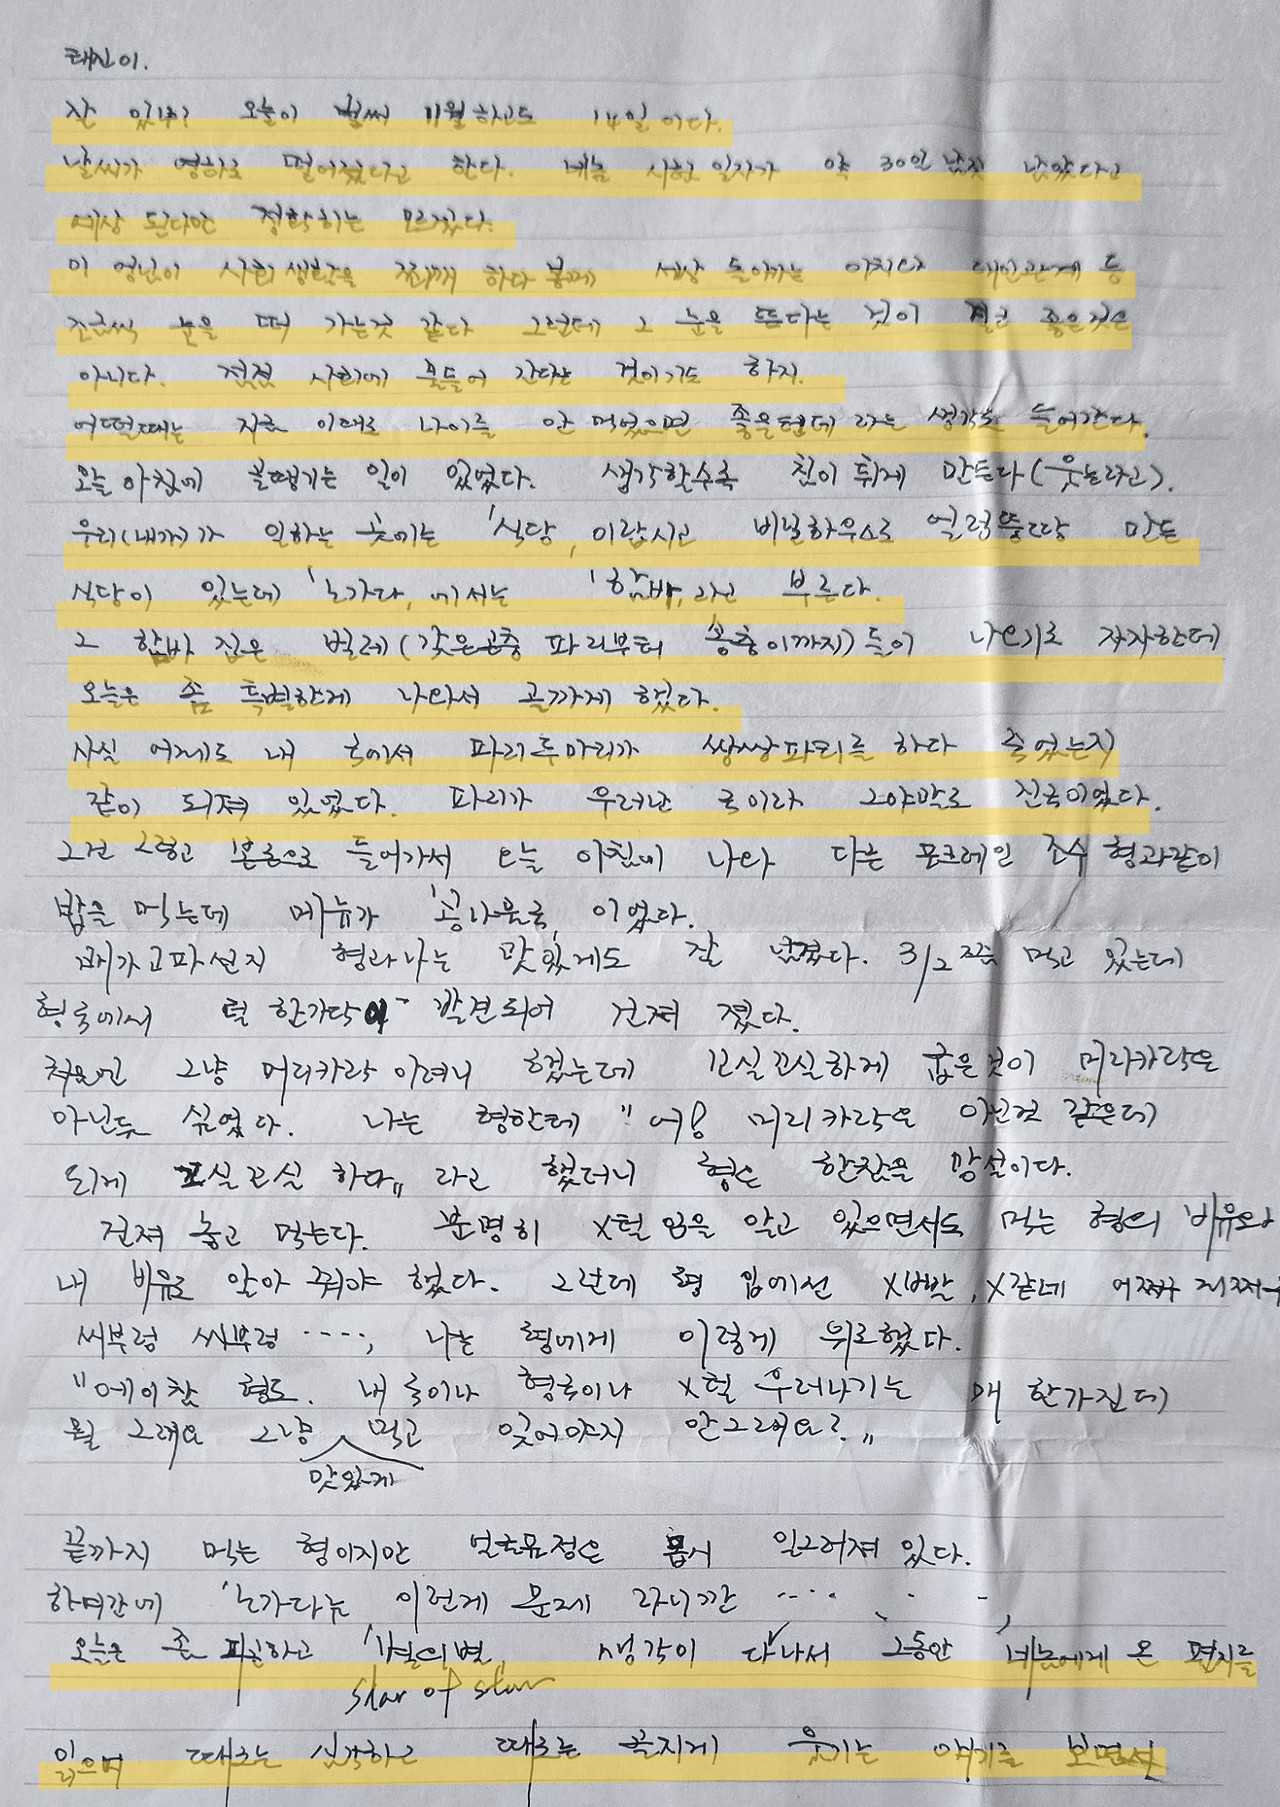 태진이.
잘 있냐? 오늘이 벌써 11월하고도 14일이다.
날씨가 영하로 떨어졌다고 한다. 네놈 시험일자가 약 30일 남짓 남았다고
예상 된다만 정확히는 모르겠다.
이 형님이 사회생활을 하다 봉께 세상 돌아가는 이치나 대인관계 등
조금씩 눈을 떠 가는것 같다 그런데 그 눈을 뜬다는 것이 결코 좋은것은
아니다. 점점 사회에 물들어 간다는 것이기도 하지.
어떨때는 지금 이대로 나이를 안 먹었으면 좋을텐데 라는 생각도 들어간다.
오늘 아침에 볼땡기는 일이 있었다. 생각할수록 침이 튀게 만든다(웃느라고).
우리(내가)가 일하는 곳에는 '식당,이랍시고 비닐하우스로 얼렁뚱땅 만든
식당이 있는데 '노가다,에서는 '함바,라고 부른다.
그 함바 집은 벌레(갖은곤충 파리부터 송충이까지)들이 나오기로 자자한데
오늘은 좀 특별한게 나와서 골까게 했다.
사실 어제도 내 국에서 파리두마리가 쌍쌍파티를 하다 죽었는지
같이 뒤져 있었다. 파리가 우러난 국이라 그야말로 진국이었다.
그건 그렇고 본론으로 들어가서 오늘 아침에 나와 다른 포크레인 조수 형과같이
밥을 먹는데 메뉴가 '콩나물국,이었다.
배가고파선지 형과나는 맛있게도 잘 넘겼다. 3/2쯤 먹고 있는데
형국에서 털 한가닥이 발견되어 건져 졌다.
처음엔 그냥 머리카락이려니 했는데 꼬실꼬실하게 굽은것이 머리카락은
아닌듯 싶었다. 나는 형한테 "어! 머리카락은 아닌것 같은데
되게 꼬실꼬실 하다" 라고 했더니 형은 한참을 망설이다.
건져 놓고 먹는다. 분명히 X털임을 알고 있으면서도 먹는 형의 비유와
내 비유로 알아 줘야 했다. 그런데 형 입에선 X벌발, X같네 어쩌구 저쩌구
씨부렁 씨부렁 ····, 나는 형에게 이렇게 위로했다.
"에이참 형도. 내국이나 형국이나 X털 우러나기는 매 한가진데
뭘 그래요 그냥 먹고 잊어야지 안그래요?"
맛있게
끝까지 먹는 형이지만 얼굴표정은 몹시 일그러져 있다.
하여간에 '노가다,는 이런게 문제 라니깐 ·····,
오늘은 좀 피곤하고 '별의별, 생각이 다나서 그동안 네놈에게 온 편지를
star of star
읽으며 때로는 심각하고 때로는 웃기는 얘기를 보면서